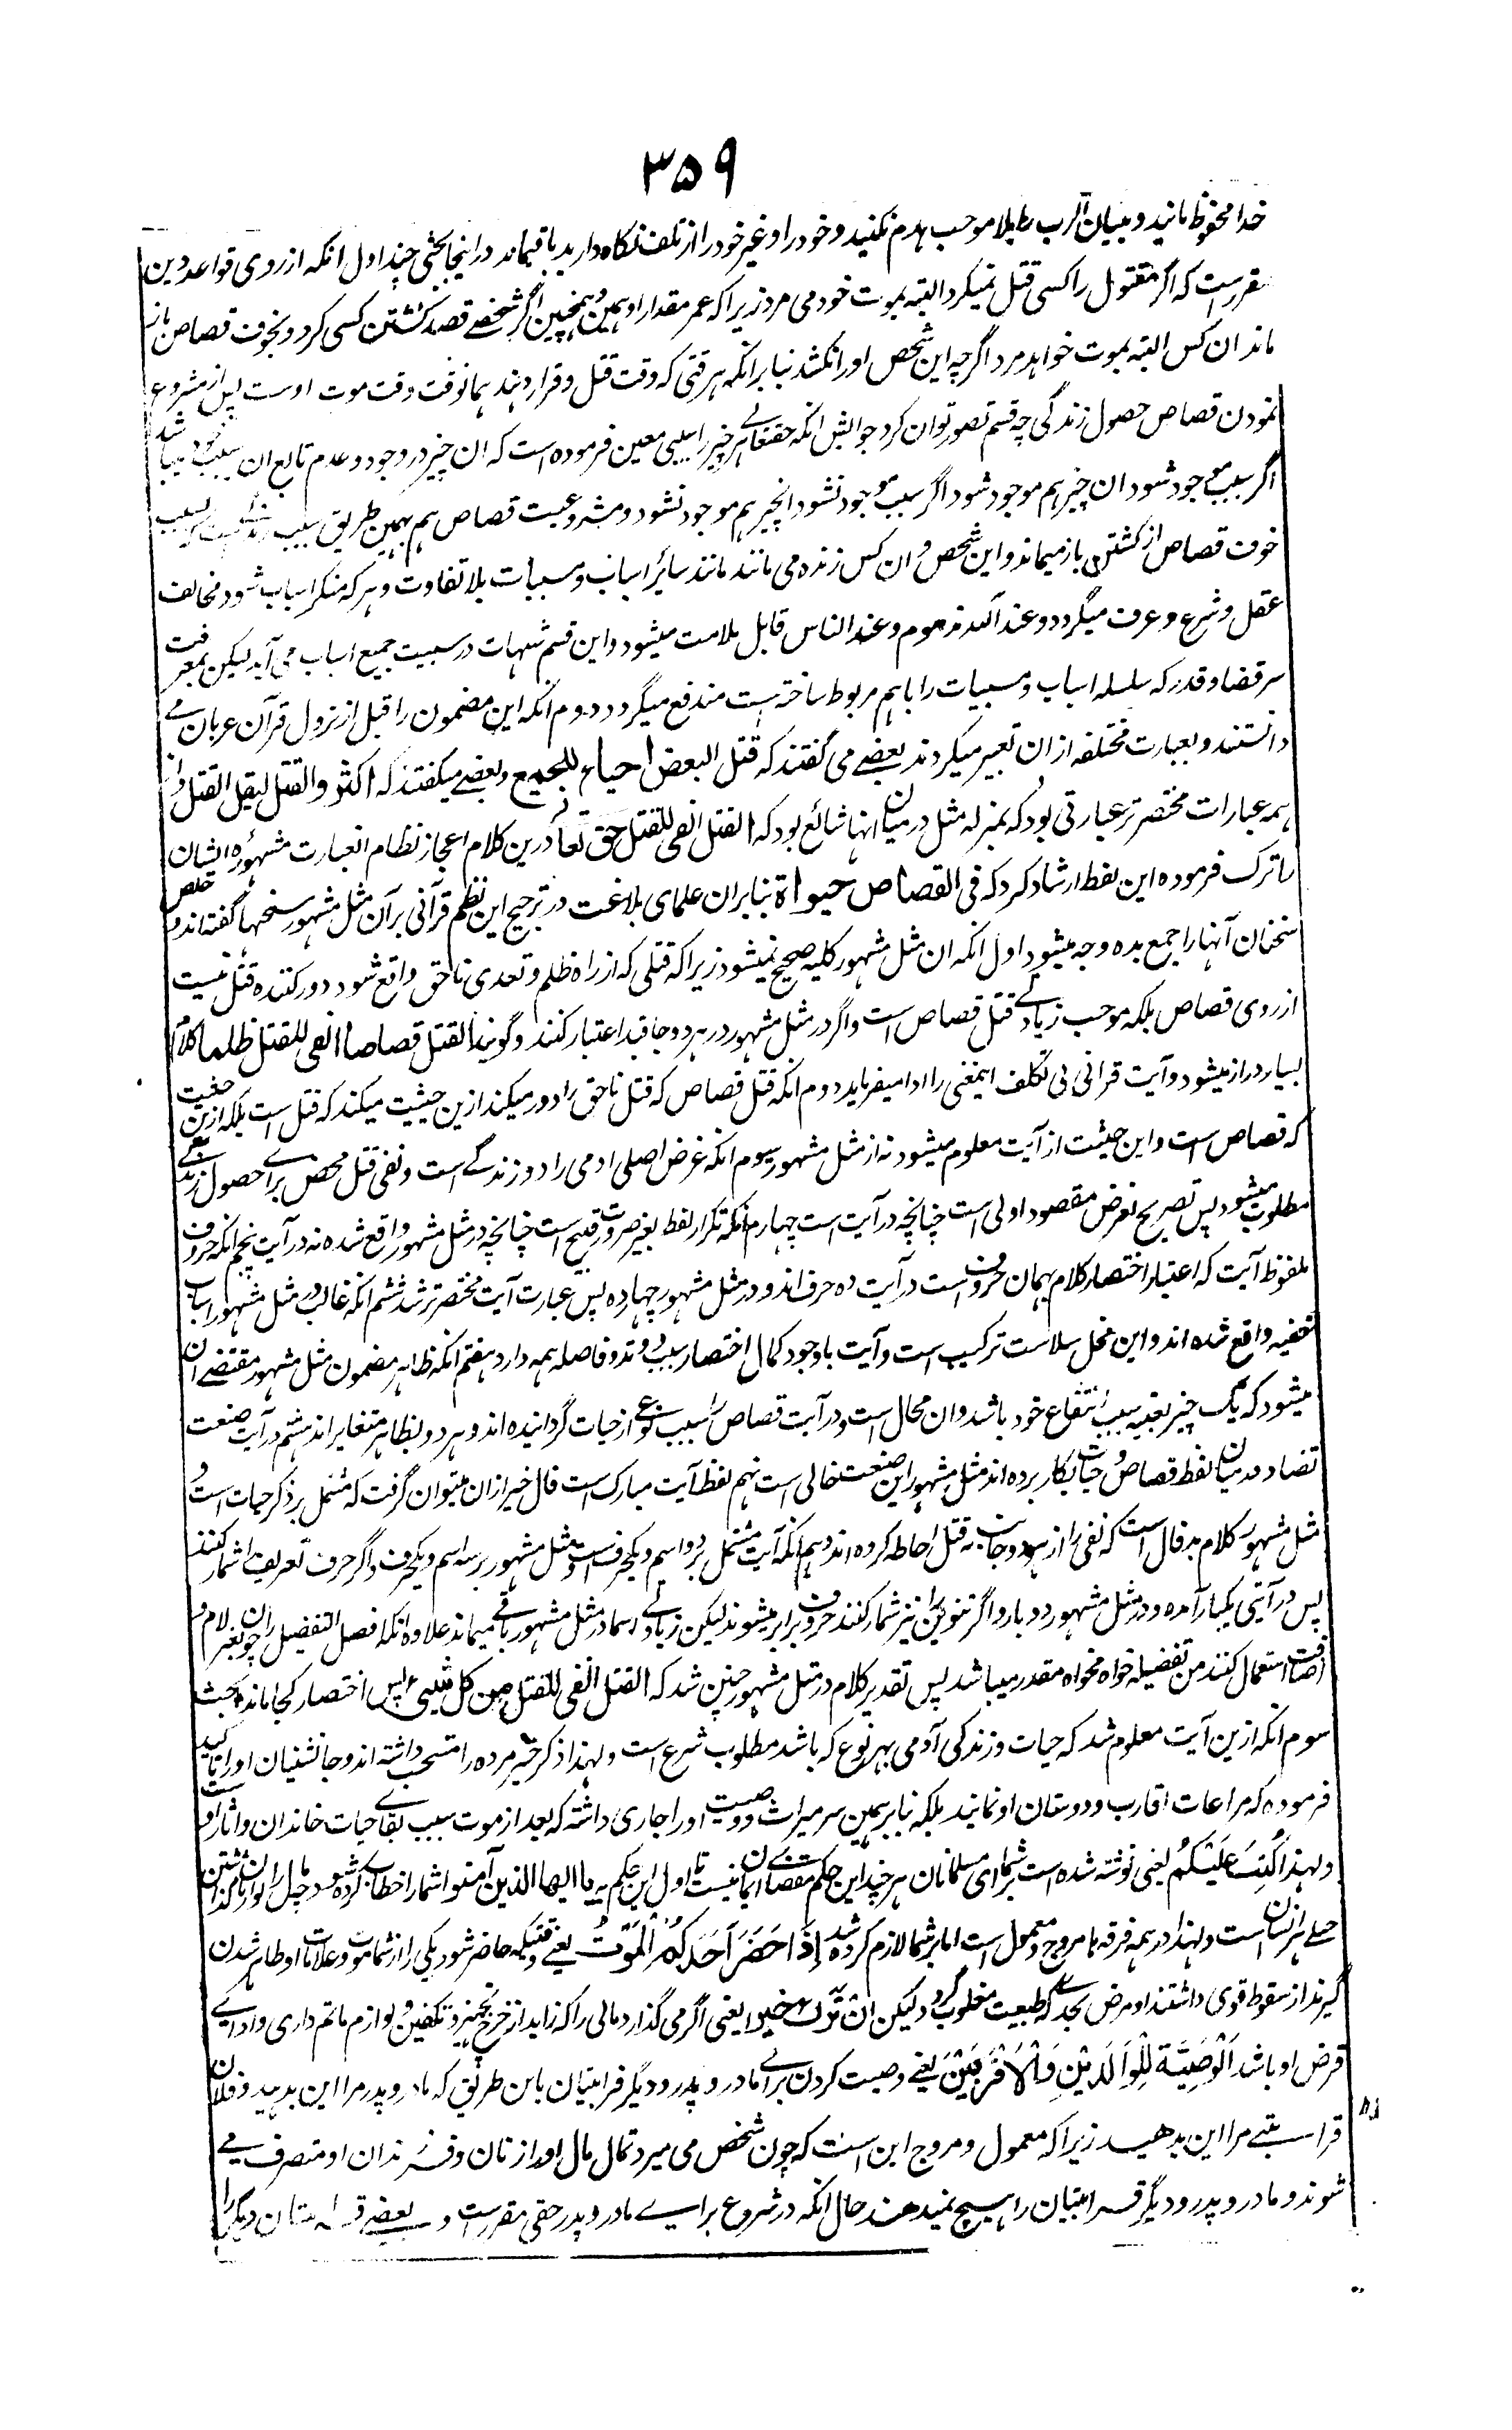 ۳۵۹
خدا محفوظ مانید و بنیان الرب را بلا موجب هدم نکنید و خود را و غیر خود را از تلف نگاه دارید باقیماند در اینجا بحثی چند اول انکه از روی قواعد دین
مقررست که اگر مقتول را کسی قتل نمیکرد البته بموت خود می مرد زیرا که عمر مقدار او همین و همچنین اگر شخصے قصد کشتن کسی کرد و بخوف قصاص باز
ماند ان کس البته بموت خواهد مرد اگرچه این شخص او را نکشد بنا بر انکه هر وقتی که وقت قتل و قرار دهند همانوقت وقت موت اوست پس از مشروع
نمودن قصاص حصول زندگی چه قسم تصور توان کرد جوابش انکه حقتعالے هر چیز را سببی معین فرموده است که ان چیز در وجود و عدم تابع ان سبب میباشد
اگر سبب موجود شود ان چیز هم موجود شود اگر سبب موجود نشود انچیز هم موجود نشود و مشروعیت قصاص هم بهمین طریق سبب زندگیست که بسبب
خوف قصاص از کشتن باز میماند و این شخص و ان کس زنده می مانند مانند سائر اسباب و مسببات بلا تفاوت و هر که منکر اسباب شود مخالف
عقل و شرع و عرف میگردد و عند الله مذموم و عند الناس قابل ملامت میشود و این قسم شبهات در سببیت جمیع اسباب می آید لیکن بمعرفت
سر قضا و قدر که سلسله اسباب و مسببات را باهم مربوط ساخته است مندفع میگردد دوم انکه این مضمون را قبل از نزول قرآن عربان مے
دانستند و بعبارت مختلفه از ان تعبیر میکردند بعضے می گفتند که قتل البعض احیاء للجمیع و بعضے میگفتند که اکثروا القتل لیقل القتل و از
همه عبارات مختصر تر عبارتی بود که بمنزله مثل درمیان انها شائع بود که القتل انفی للقتل حق تعالی درین کلام اعجاز نظام انعبارت مشهوره ایشان
را ترک فرموده این لفظ ارشاد کرد که فی القصاص حیواة بنابران علمای بلاغت در ترجیح این نظم قرآنی بر آن مثل مشهور سخنها گفته اند و خلاصه
سخنان آنها راجع بده وجه میشود اول انکه ان مثل مشهور کلیه صحیح نمیشود زیرا که قتلی که از راه ظلم و تعدی ناحق واقع شود دور کننده قتل نیست
از روی قصاص بلکه موجب زیادتے قتل قصاص است و اگر در مثل مشهور در هر دو جا قید اعتبار کنند و گویند القتل قصاصا انفی للقتل ظلما کلام
بسیار دراز میشود و آیت قرانی بی تکلف اینمعنی را ادا میفرماید دوم انکه قتل قصاص که قتل ناحق را دور میکند ازین حیثیت میکند که قتل است بلکه ازین حیثیت
که قصاص است و این حیثیت از آیت معلوم میشود نه از مثل مشهور سیوم انکه غرض اصلی ادمی را دو زندگے است و نفی قتل محض برای حصول زندگی
مطلوب میشود پس تصریح بغرض مقصود اولی است چنانچه در آیت است چهارم انکه تکرار لفظ بغیر ضرورت قبیح است چنانچه در مثل مشهور واقع شده نه در آیت پنجم انکه حروف
ملفوظ آیت که اعتبار اختصار کلام بهمان حروف است در آیت ده حرف اند و در مثل مشهور چهارده پس عبارت آیت مختصر تر شد ششم انکه غالب در مثل مشهور اسباب
خفیفه واقع شده اند و این مخل سلاست ترکیب است و آیت باوجود کمال اختصار سبب و وتد و فاصله همه دارد هفتم انکه ظاهر مضمون مثل مشهور مقتضے ان
میشود که یک چیز بعینه سبب انتفاء خود باشد و ان محال است و در آیت قصاص را سبب نوعی از حیات گردانیده اند و هر دو بظاهر متغایر اند هشتم در آیت صنعت
تضاد درمیان لفظ قصاص و حیات بکار برده اند مثل مشهور ازین صنعت خالی است نهم لفظ آیت مبارک است فال خیر از ان میتوان گرفت که مشتمل بر ذکر حیات است و
مثل مشهور کلام بدفال است که نفی را از هر دو جانب قتل احاطه کرده اند دهم انکه آیت مشتمل بر دو اسم و یکحرف است و مثل مشهور بر سه اسم و یکحرف و اگر حرف تعریف را شمار کنند
پس در آیتی یکبار آمده و در مثل مشهور دوبار و اگر تنوین را نیز شمار کنند حروف برابر میشوند لیکن زیادتے اسما در مثل مشهور باقے میماند علاوه انکه افعل التفضیل را چون بغیر لام و
اضافت استعمال کنند من تفضیلیه خواه مخواه مقدر میباشد پس تقدیر کلام در مثل مشهور چنین شد که القتل انفی للقتل من کل شیی پس اختصار کجا ماند بحث
سوم انکه ازین آیت معلوم شد که حیات و زندگی آدمی بهر نوع که باشد مطلوب شرع است و لهذا ذکر خیر مرده را مستحب داشته اند و جانشنیان او را تاکید
فرموده که مراعات اقارب و دوستان او نمایند بلکه بنا بر همین سر میراث و وصیت او را جاری داشته که بعد از موت سبب بقای حیات خاندان و اثار اوست
و لهذا كُتِبَ عَلَيْكُمْ یعنی نوشته شده است بر شما ای مسلمانان هر چند این حکم مقتضای ایمان نیست تا اول این حکم به یا ایها الذین آمنوا شما را خطاب کرده شود چه مال را گذاشتن
جبلے هر انسان است و لهذا در همه فرقه ها مروج و معمول است اما بر شما لازم کرده شد إِذَا حَضَرَ أَحَدَكُمُ الْمَوْتُ یعنے وقتیکه حاضر شود یکی را از شما موت و علامات او ظاهر شدن
گیرند از سقوط قوی و اشتداد مرض بحدے که طبیعت مغلوب گردد لیکن ان ترك خيرا یعنی اگر می گذارد مالی را که زاید از خرج تجهیز و تکفین و لوازم ماتم داری و ادای
قرض او باشد الْوَصِيَّةُ لِلْوَالِدَيْنِ وَالْأَقْرَبِينَ یعنے وصیت کردن برای مادر و پدر و دیگر قرابتیان باین طریق که مادر و پدر مرا این بدهید و فلان
قرابتے مرا این بدهید زیرا که معمول و مروج این است که چون شخص می میرد تمام مال او را زنان و فرزندان او متصرف مے
شوند و مادر و پدر و دیگر قرابتیان را هیچ نمیدهند حال انکه در شروع برایے مادر و پدر حقی مقررست و بعضے قرابتیان دیگر را